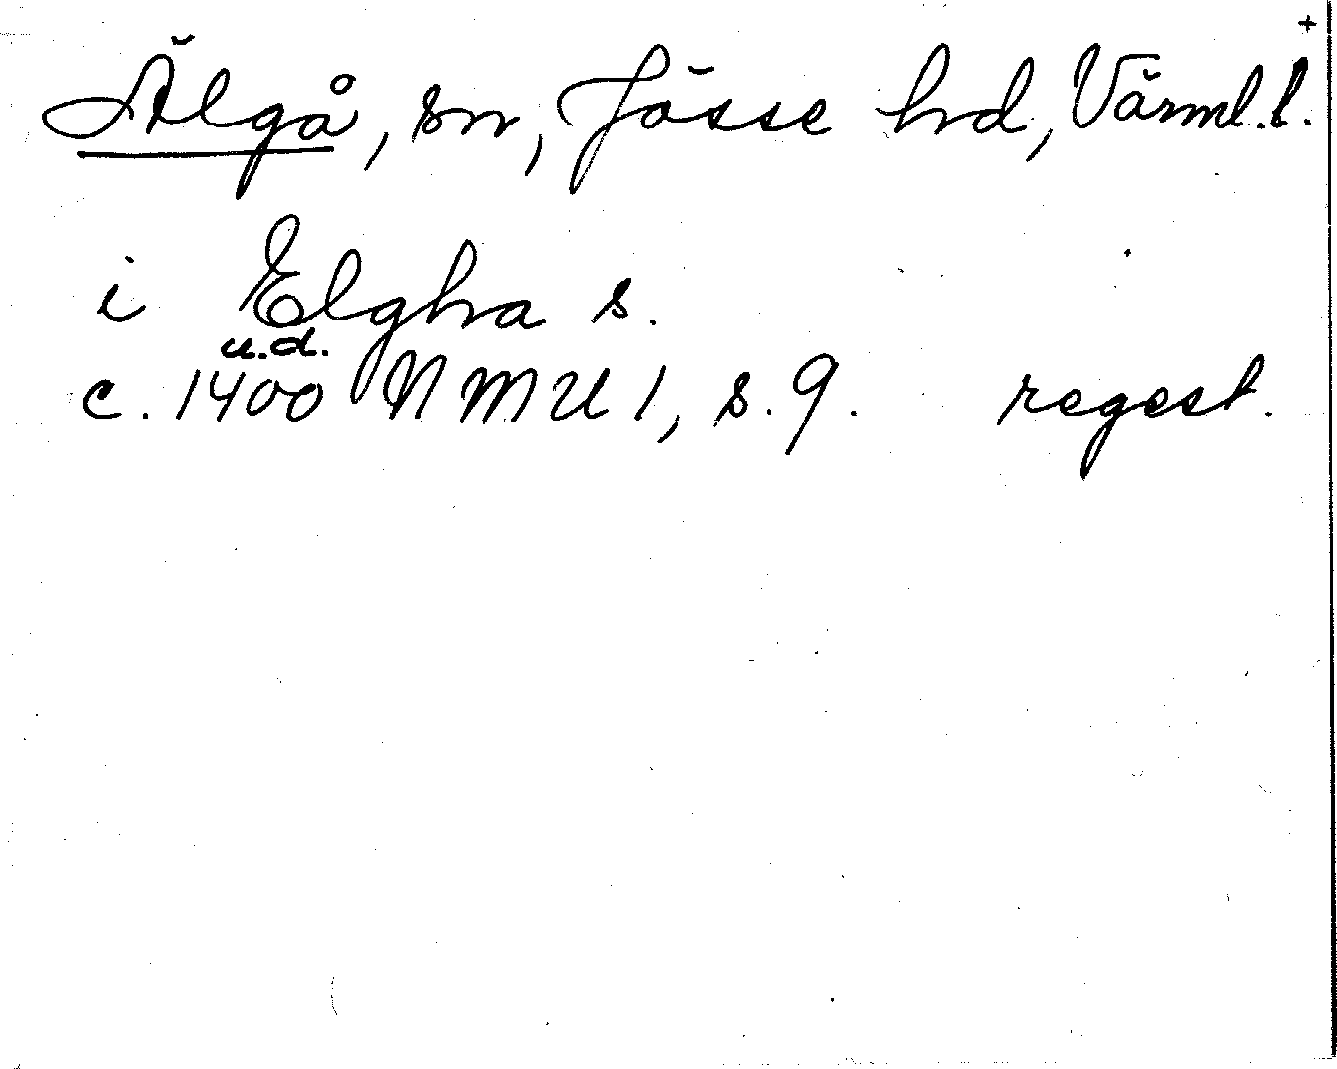 +
Älgå, sn, Jösse hd, Värml.l.
i Elgha s.
u.d.
c. 1400 NMU 1, s. 9. regest.